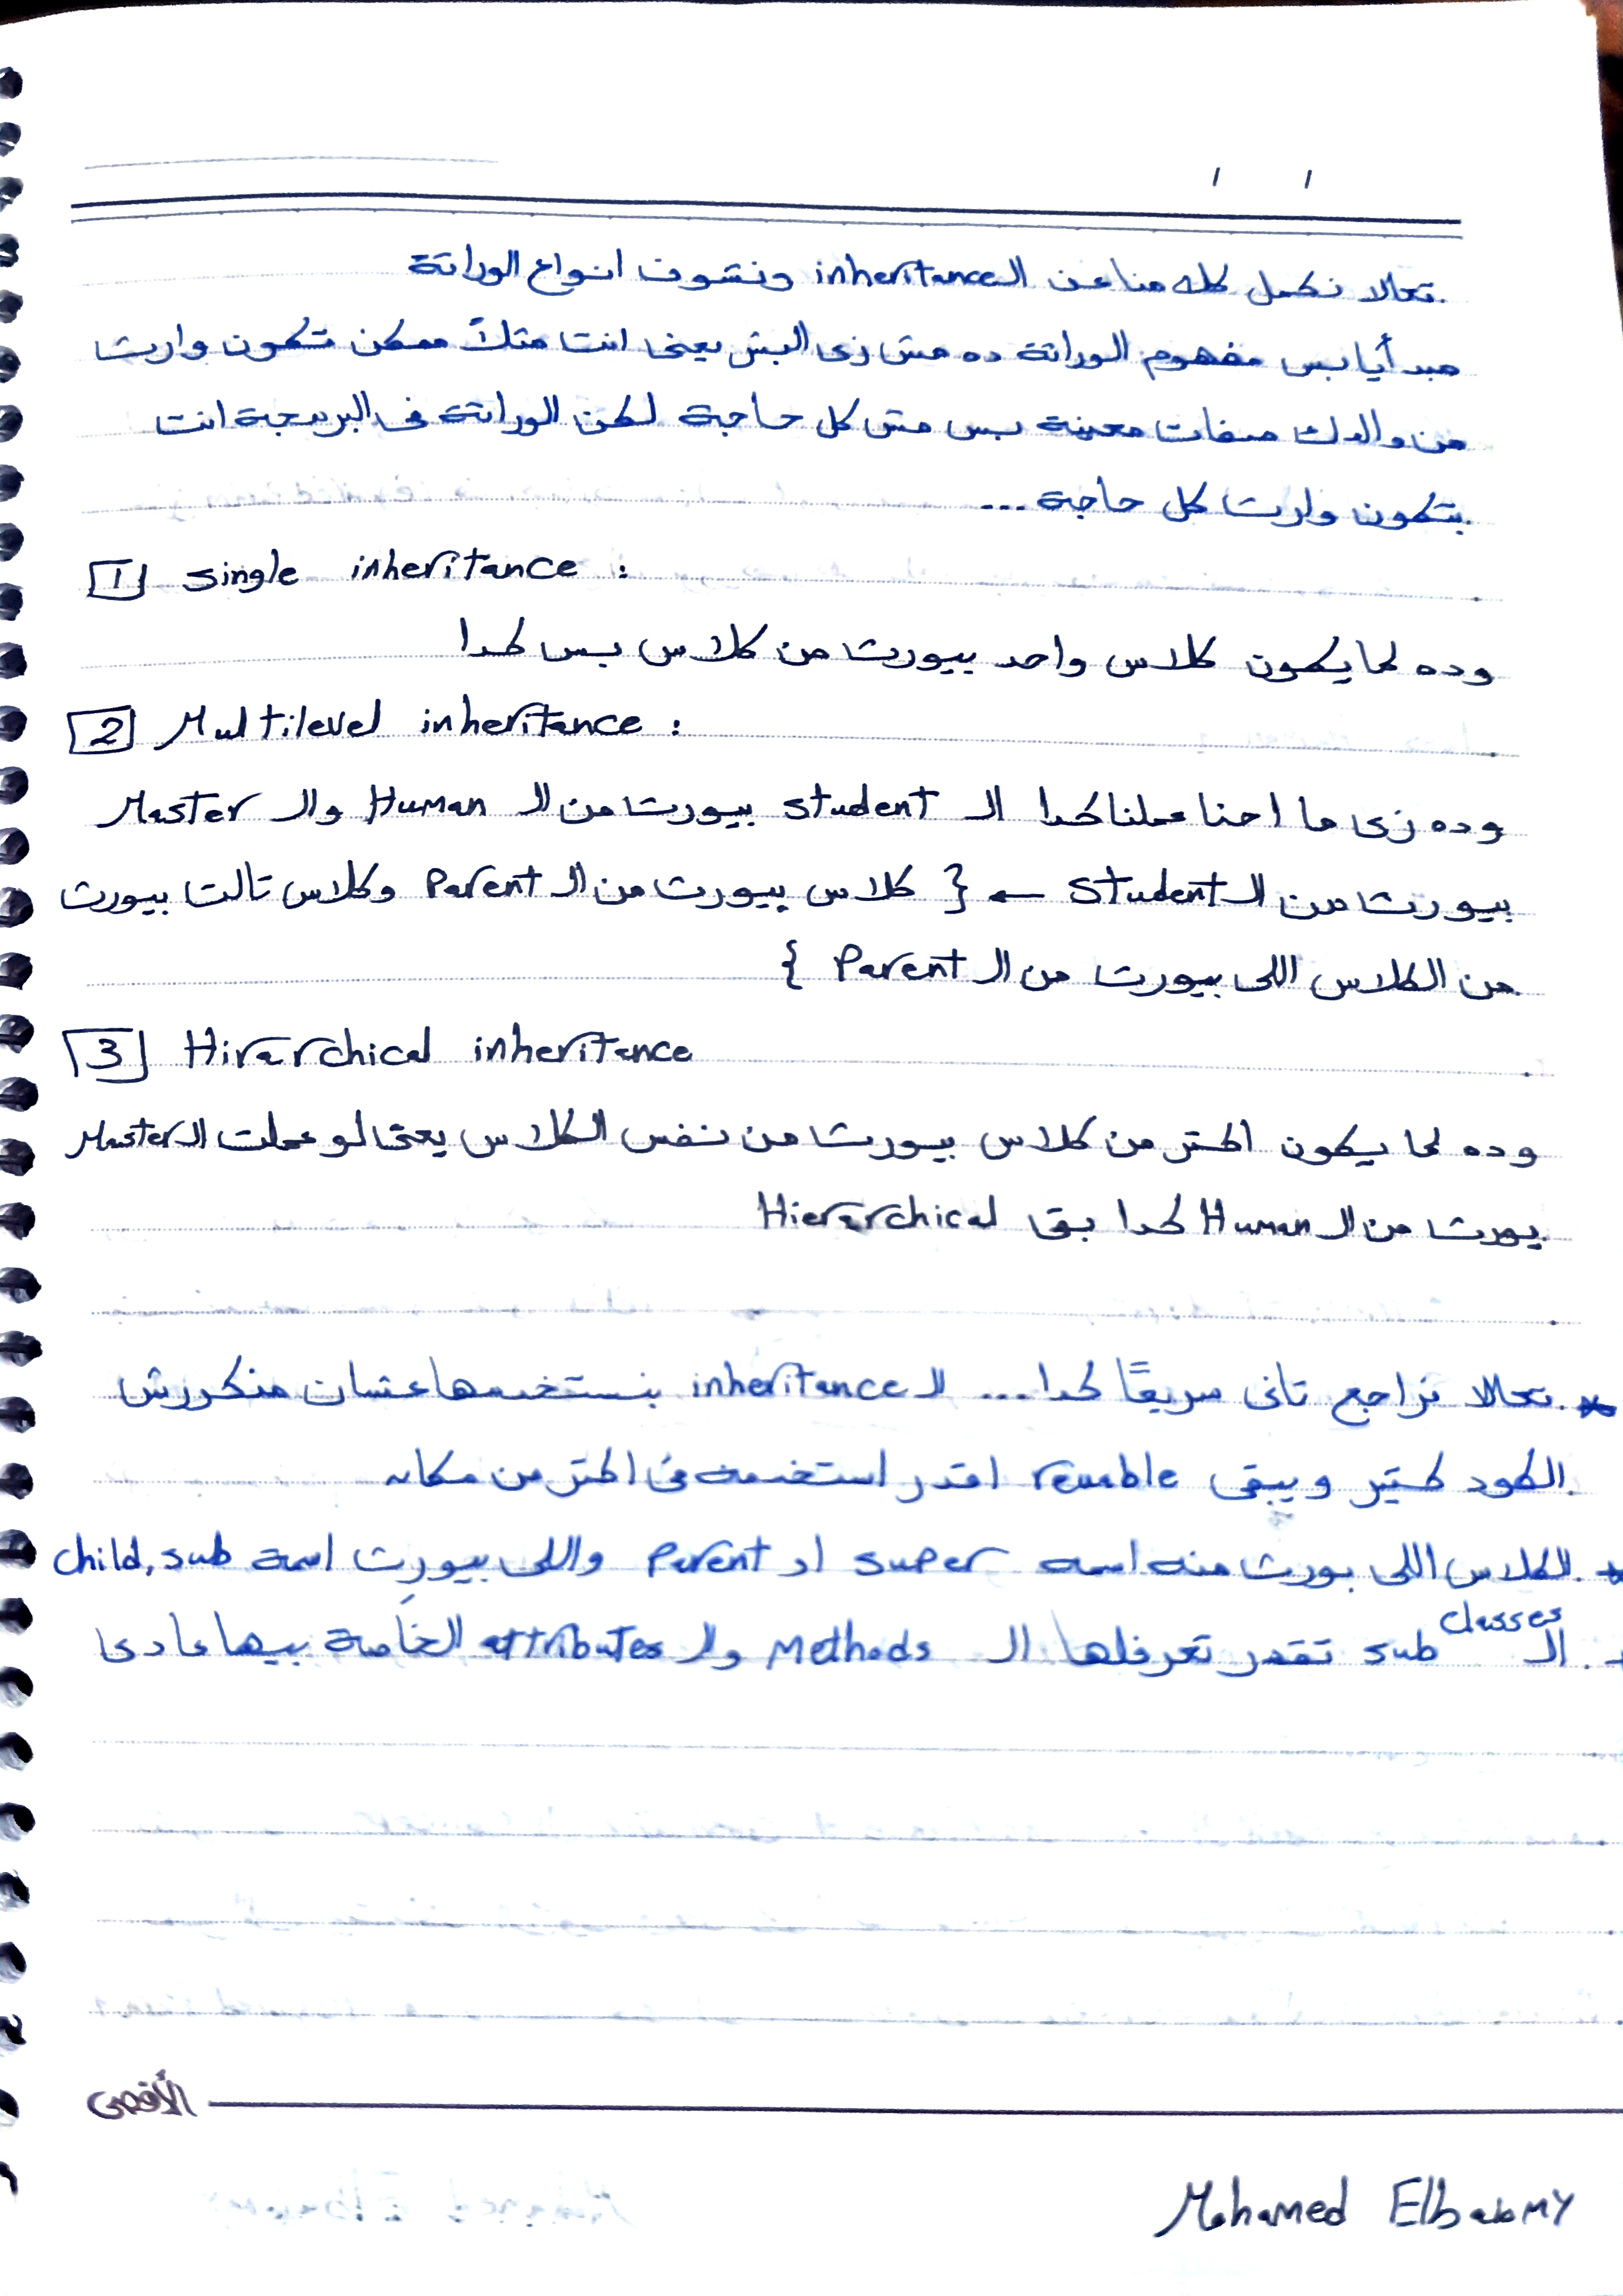 تعالا نكمل كلامنا عن الـ inheritance ونشوف انواع الوراثة
مبدأيا بس مفهوم الوراثة ده مش زى البشر يعنى انت مثلاً ممكن تكون وارث
من والدك صفات معينة بس مش كل حاجة لكن الوراثة فى البرمجة انت
بتكون وارث كل حاجة ...
1 single inheritance :
وده لما يكون كلاس واحد بيورث من كلاس بس كدا
2 Multilevel inheritance :
وده زى ما احنا عملنا كدا الـ student بيورث من الـ Human والـ Master
بيورث من الـ Student ← { كلاس بيورث من الـ Parent وكلاس تالت بيورث
من الكلاس اللى بيورث من الـ Parent }
3 Hirarchical inheritance
وده لما يكون اكتر من كلاس بيورث من نفس الكلاس يعنى لو عملت الـ Master
يورث من الـ Human كدا بقى Hierarchical
* تعالا نراجع تانى سريعًا كدا ... الـ inheritance بنستخدمها عشان منكررش
الكود كتير ويبقى reusable اقدر استخدمه فى اكتر من مكان
* الكلاس اللى بورث منه اسمه super او Parent واللى بيورِث اسمة child, sub
الـ sub classes تقدر تعرفلها الـ Methods والـ attributes الخاصة بيها عادى
الأقصى
Mohamed Elbaiomy